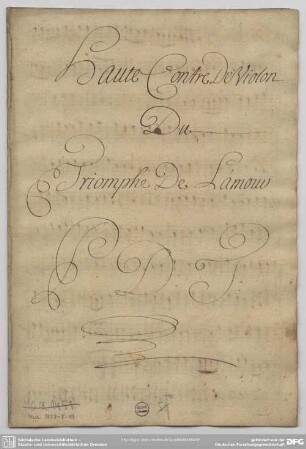 Haute Contre De Violon
Du
Triomphe De L'amour
P. D. J.
Sächsische Landesbibliothek -
Staats- und Universitätsbibliothek Dresden
gefördert von der DFG
Deutschen Forschungsgemeinschaft